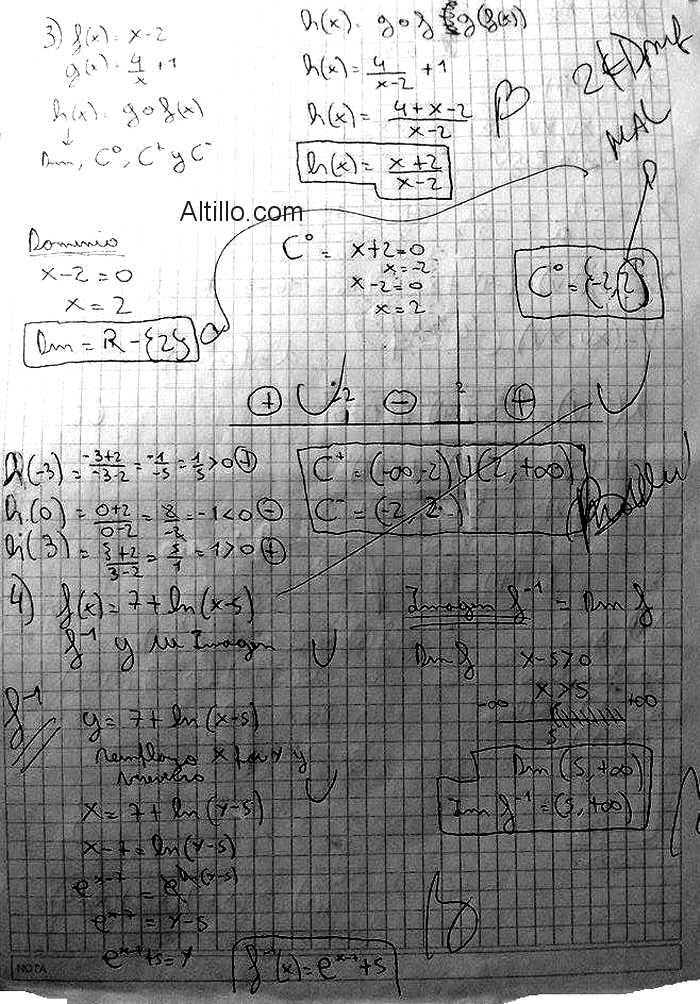 3) f(x) = x-2
g(x) = 4/x + 1
h(x) = g o f(x)
↓
Dm, C⁰, C⁺ y C⁻
h(x) = g o f = g(f(x))
h(x) = 4/(x-2) + 1
h(x) = (4+x-2)/(x-2)
h(x) = (x+2)/(x-2)
B
2 ∉ Dm f
MAL
Altillo.com
Dominio
x-2=0
x=2
Dm = R-{2}
C⁰ = x+2=0
x=-2
x-2=0
x=2
C⁰ = {-2, 2}
+ -2 - 2 +
h(-3) = (-3+2)/(-3-2) = -1/-5 = 1/5 > 0 +
h(0) = (0+2)/(0-2) = 2/-2 = -1 < 0 -
h(3) = (3+2)/(3-2) = 5/1 = 1 > 0 +
C⁺ = (-∞, -2) U (2, +∞)
C⁻ = (-2, 2)
4) f(x) = 7 + ln(x-5)
f⁻¹ y su Imagen
f⁻¹
y = 7 + ln(x-5)
reemplazo x por y y
viceversa
x = 7 + ln(y-5)
x-7 = ln(y-5)
e^(x-7) = e^(ln(y-5))
e^(x-7) = y-5
e^(x-7)+5 = y
f⁻¹(x) = e^(x-7)+5
Imagen f⁻¹ = Dm f
Dm f x-5>0
x>5
-∞ 5 +∞
Dm (5, +∞)
Im f⁻¹ = (5, +∞)
b
NOTA